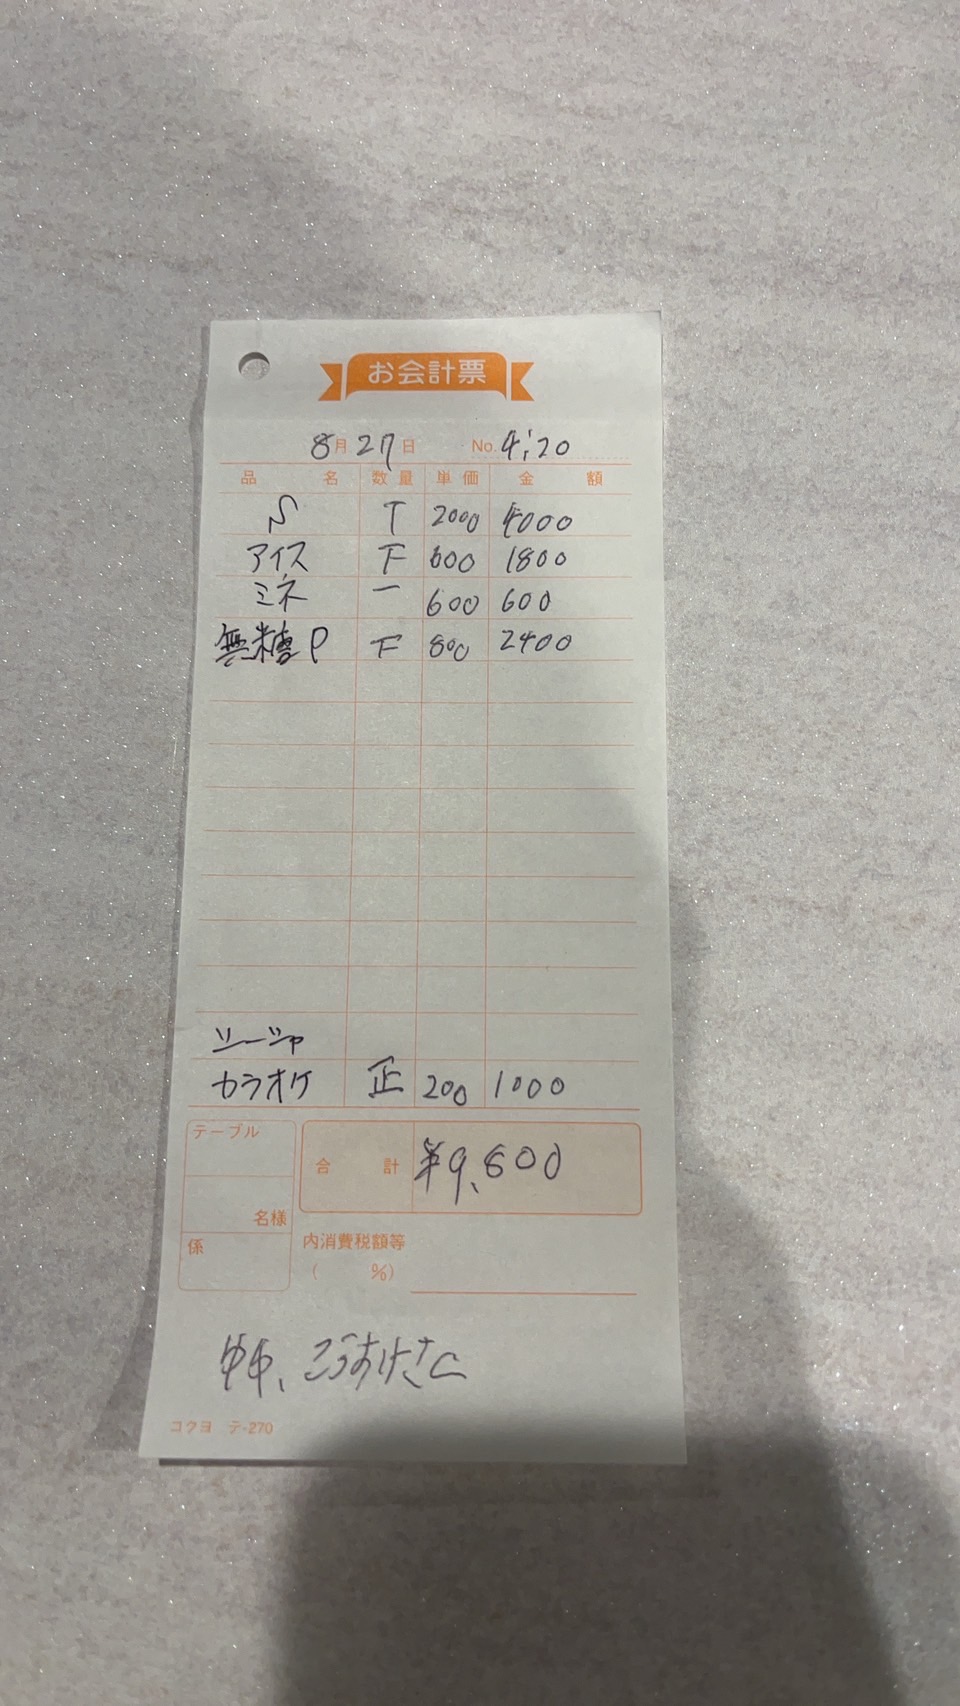 お会計票
8月27日 No. 4:20
品名 数量 単価 金額
S T 2000 4000
アイス 下 600 1800
ミネ 一 600 600
無糖P 下 800 2400
シーシャ
カラオケ 正 200 1000
テーブル
合計 ¥9,800
名様
係
内消費税額等
( %)
ゆゆ、こうすけさん
コクヨ テ-270